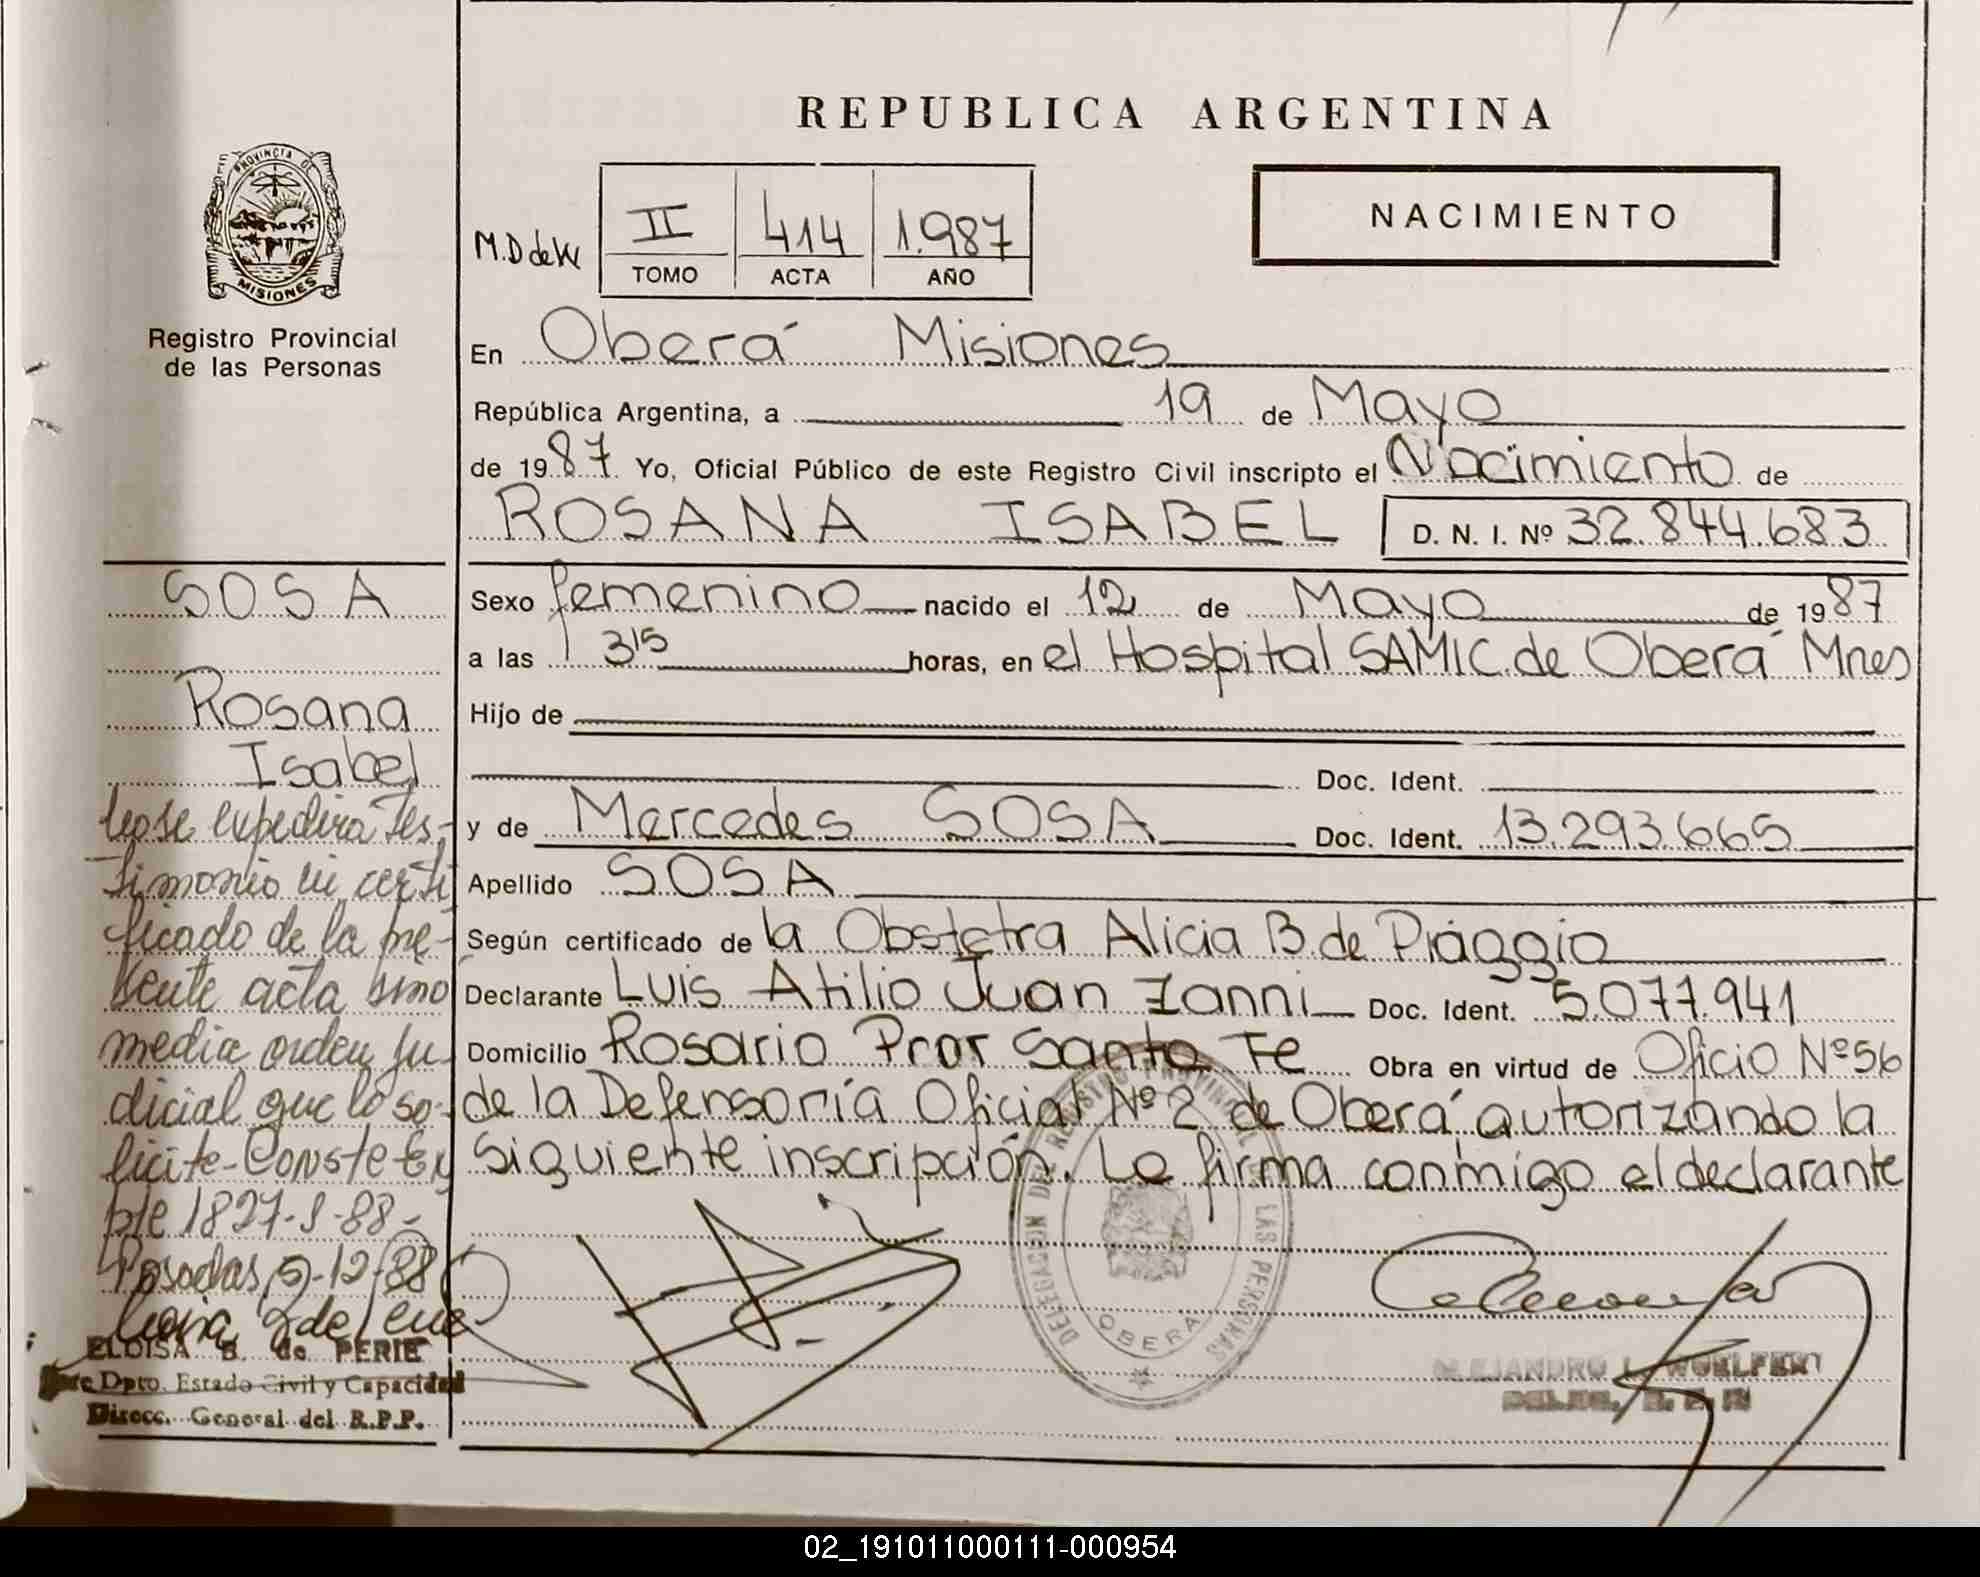 REPUBLICA ARGENTINA
PROVINCIA DE
MISIONES
Registro Provincial
de las Personas
M.D de W
II 414 1.987
TOMO ACTA AÑO
NACIMIENTO
En Oberá Misiones
República Argentina, a 19 de Mayo
de 1987. Yo, Oficial Público de este Registro Civil inscripto el Nacimiento de
ROSANA ISABEL D. N. I. Nº 32.844.683
Sexo femenino nacido el 12 de Mayo de 1987
a las 315 horas, en el Hospital SAMIC. de Oberá Mnes
Hijo de
Doc. Ident.
y de Mercedes SOSA Doc. Ident. 13.293.665
Apellido SOSA
Según certificado de la Obstetra Alicia B. de Piaggio
Declarante Luis Atilio Juan Zanni Doc. Ident. 5.077.941
Domicilio Rosario Pror Santa Fe Obra en virtud de Oficio Nº 56
de la Defensoría Oficial Nº 2 de Oberá autorizando la
siguiente inscripción. Le firma conmigo el declarante
SOSA
Rosana
Isabel
No se expedira Tes-
timonio ni certi
ficado de la pre-
sente acta sino
media orden ju-
dicial que lo so-
licite - Conste Ex
pte 1827-S-88-
Posadas, 9-12-88
ELOISA B. de PERIE
Jefe Dpto. Estado Civil y Capacidad
Direcc. General del R.P.P.
DELEGACION DEL REGISTRO PROVINCIAL DE LAS PERSONAS
OBERA
ALEJANDRO L. WOELFERT
DELEG. R. P. P.
02_191011000111-000954